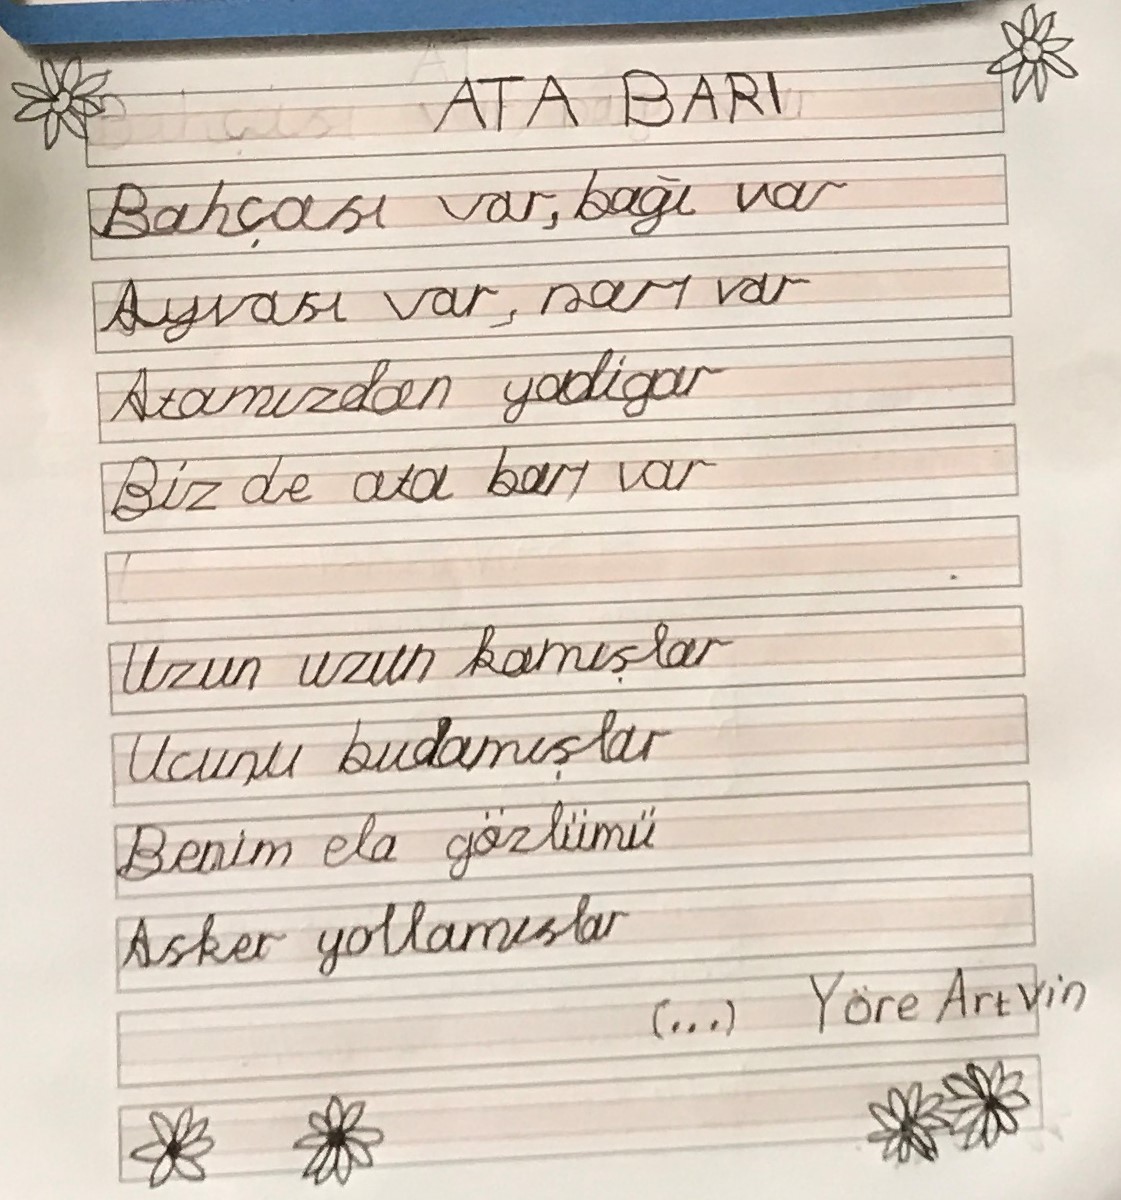 ATA BARI
Bahçası var, bağı var
Ayvası var, narı var
Atamızdan yadigar
Biz de ata barı var
Uzun uzun kamışlar
Ucunu budamışlar
Benim ela gözlümü
Asker yollamıslar
(...) Yöre Artvin